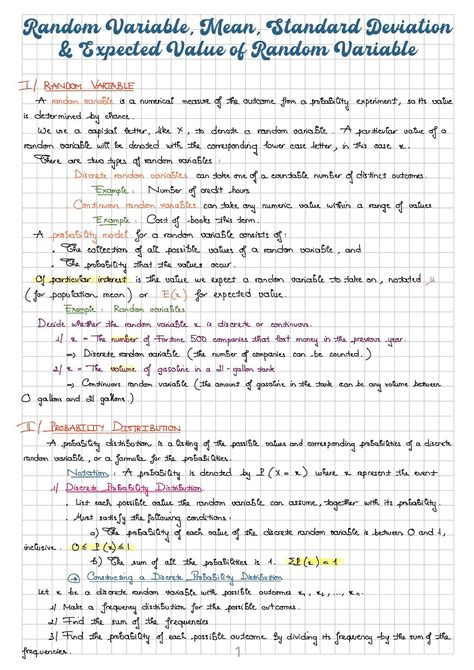 Random Variable, Mean, Standard Deviation
& Expected Value of Random Variable
I/ RANDOM VARIABLE
A random variable is a numerical measure of the outcome from a probability experiment, so its value
is determined by chance.
We use a capital letter, like X, to denote a random variable. A particular value of a
random variable will be denoted with the corresponding lower case letter, in this case x.
There are two types of random variables :
Discrete random variables can take one of a countable number of distinct outcomes.
Example : Number of credit hours
Continuous random variables can take any numeric value within a range of values
Example : Cost of books this term.
A probability model for a random variable consists of :
. The collection of all possible values of a random variable, and
. The probability that the values occur.
Of particular interest is the value we expect a random variable to take on, notated μ
(for population mean) or E(x) for expected value.
Example : Random variables
Decide whether the random variable x is discrete or continuous.
1/ x = The number of Fortune 500 companies that lost money in the previous year.
→ Discrete random variable (the number of companies can be counted.)
2/ x = The volume of gasoline in a 21-gallon tank
→ Continuous random variable (the amount of gasoline in the tank can be any volume between
0 gallons and 21 gallons.)
II/ PROBABILITY DISTRIBUTION
A probability distribution is a listing of the possible values and corresponding probabilities of a discrete
random variable, or a formula for the probabilities.
Notation : A probability is denoted by P(X = x) where x represent the event
1/ Discrete Probability Distribution
. List each possible value the random variable can assume, together with its probability.
. Must satisfy the following conditions :
a) The probability of each value of the discrete random variable is between 0 and 1,
inclusive. 0 ≤ P(x) ≤ 1
b) The sum of all the probabilities is 1. ΣP(x) = 1
Constructing a Discrete Probability Distribution
Let x be a discrete random variable with possible outcomes x₁, x₂, ..., xₙ.
1/ Make a frequency distribution for the possible outcomes.
2/ Find the sum of the frequencies
3/ Find the probability of each possible outcome by dividing its frequency by the sum of the
frequencies.
1